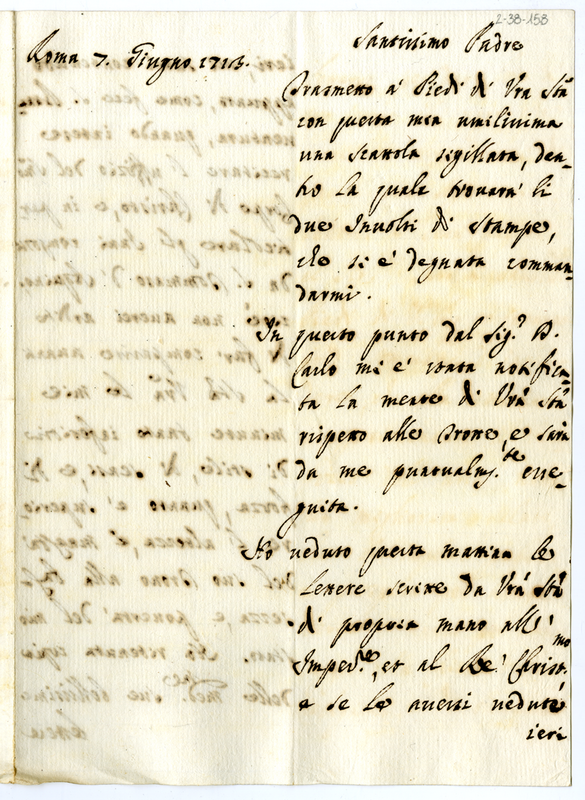 2-38-158
Roma 7. Giugno 1713.
Santissimo Padre
Trasmetto a' Piedi di Vrã Stã
con questa mia umilissima
una scattola sigillata, den-
tro la quale trovarà li
due Involti di stampe,
che si è degnata comman-
darmi.
In questo punto dal Sig.r D.
Carlo mi è stata notifica-
ta la mente di Vrã Stã
rispetto alle Trotte, e sarà
da me puntualm.te esse-
guita.
Ho veduto questa mattina le
Lettere scritte da Vrã Stã
di propria mano all'
Imped.re, et al Rè Christ.mo
e se le avessi vedute
ieri